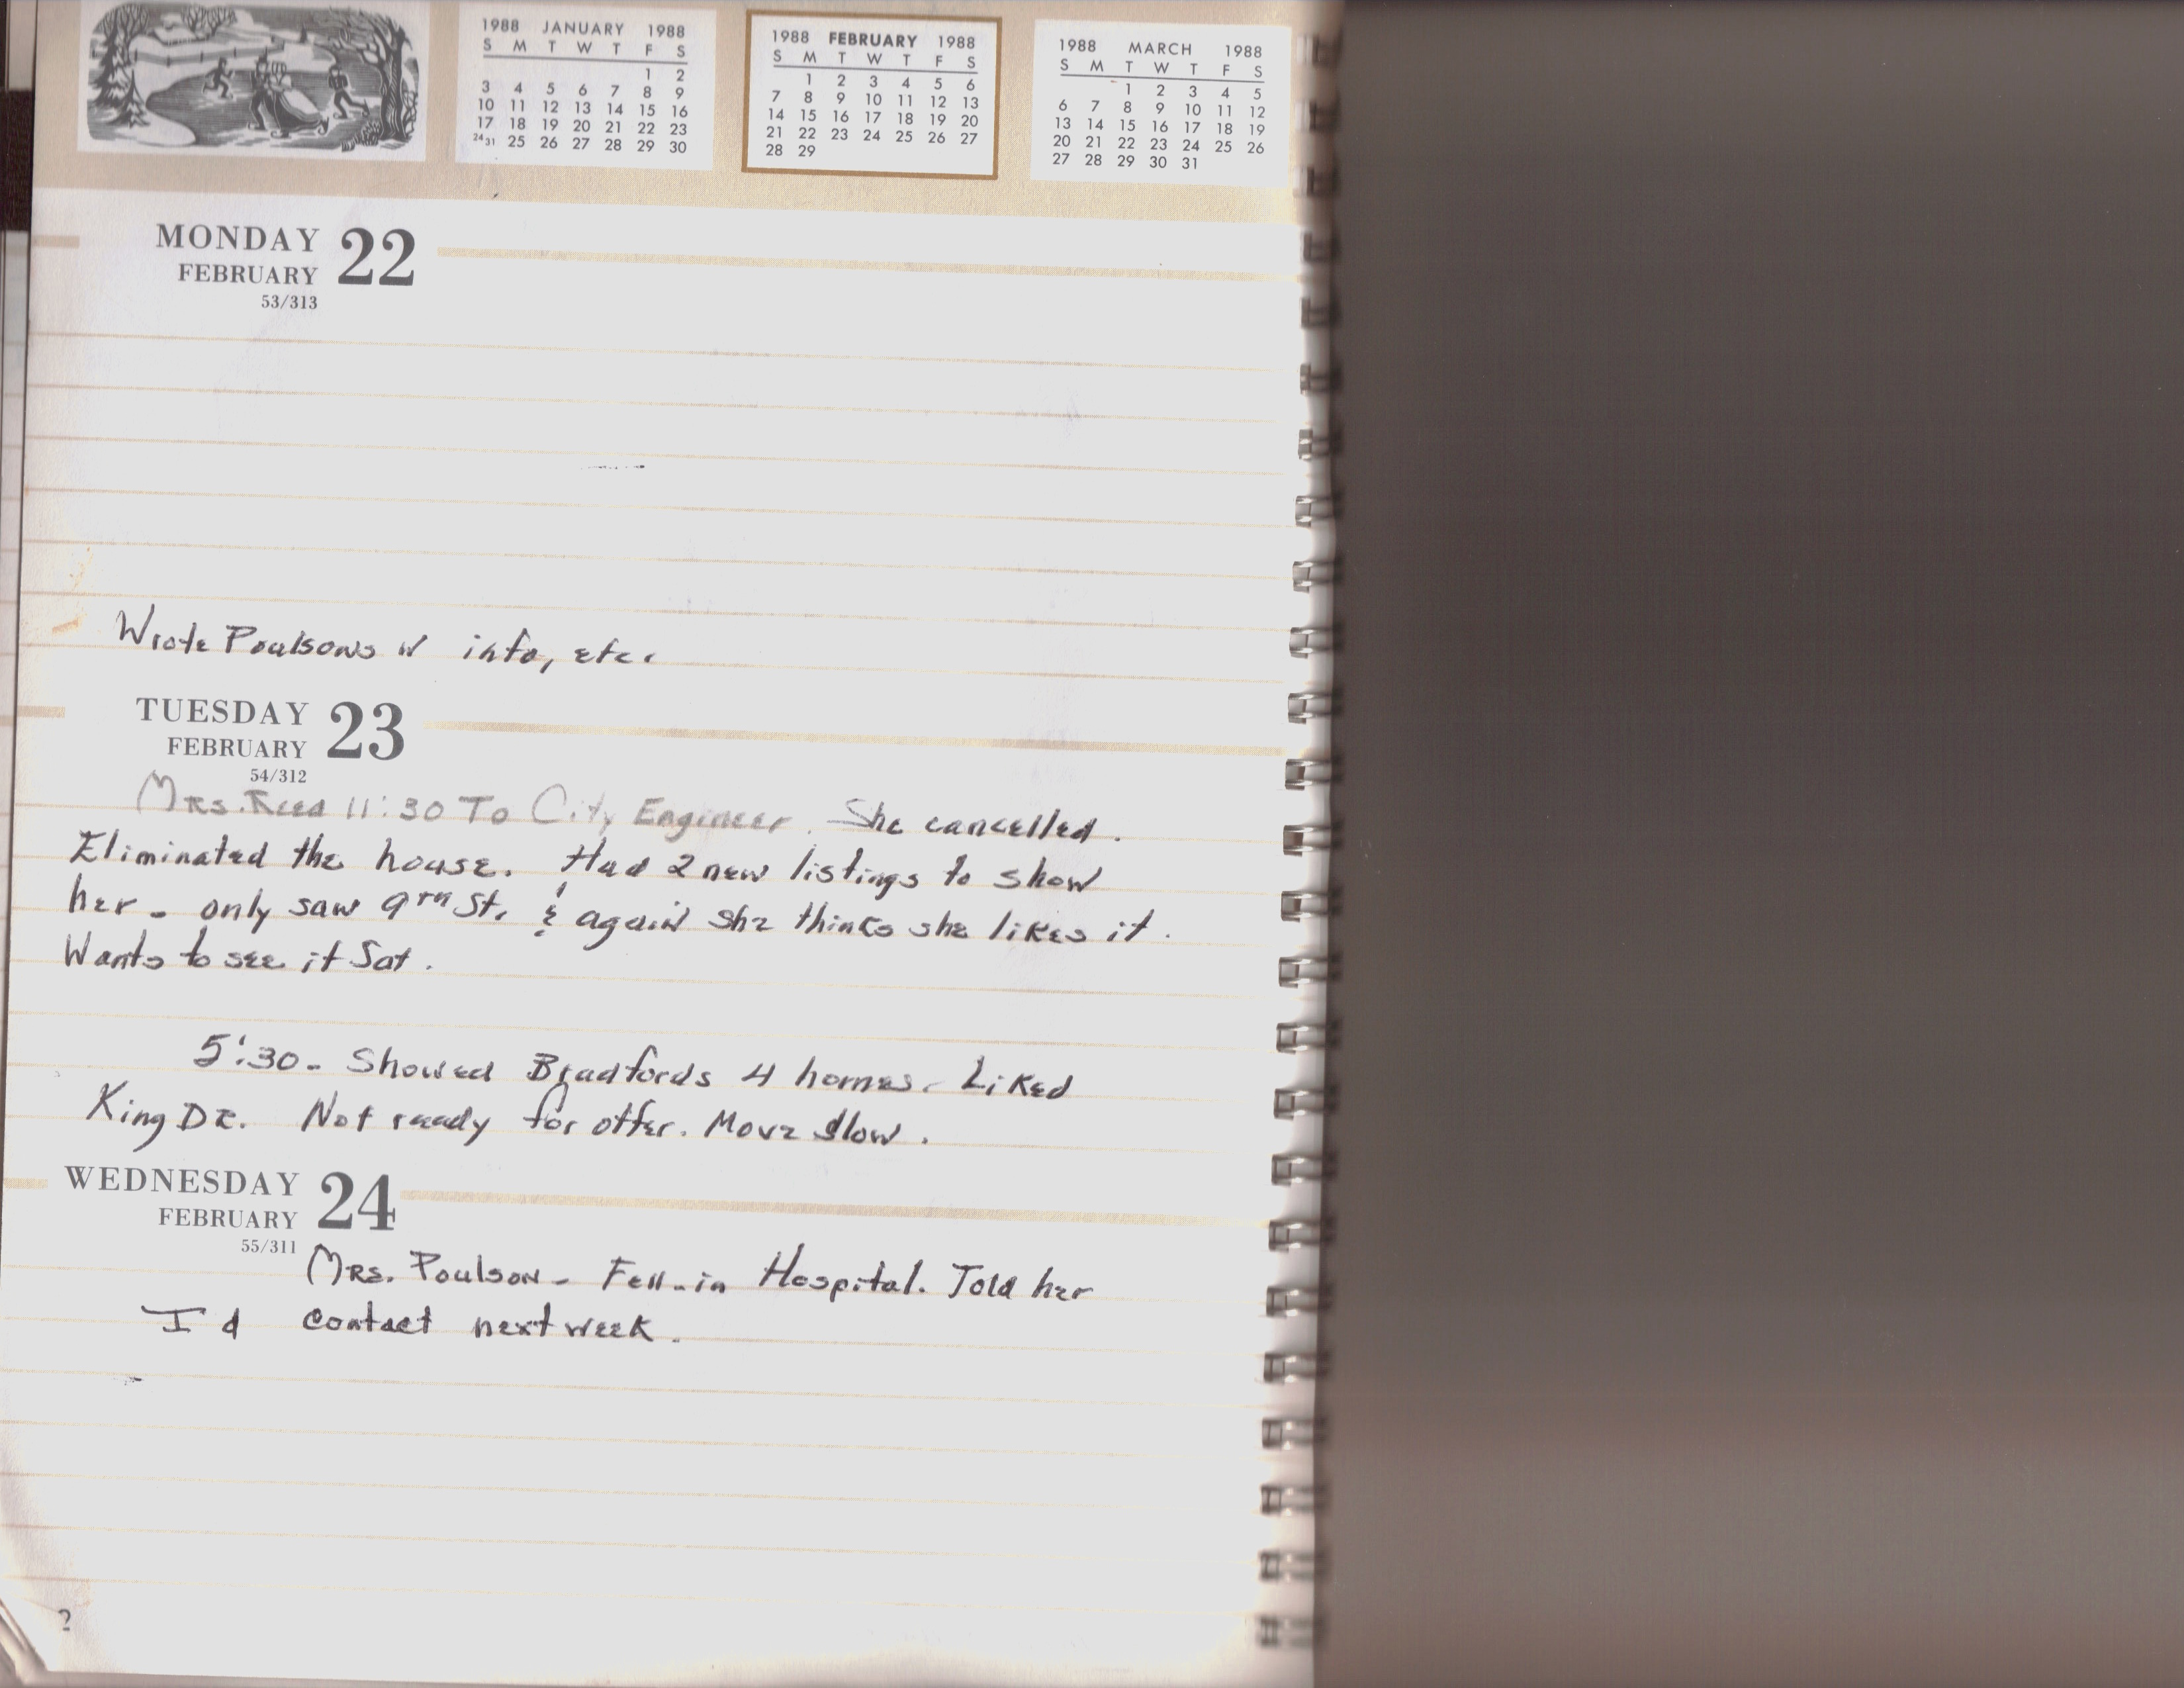 1988 JANUARY 1988
S M T W T F S
1 2
3 4 5 6 7 8 9
10 11 12 13 14 15 16
17 18 19 20 21 22 23
24 31 25 26 27 28 29 30
1988 FEBRUARY 1988
S M T W T F S
1 2 3 4 5 6
7 8 9 10 11 12 13
14 15 16 17 18 19 20
21 22 23 24 25 26 27
28 29
1988 MARCH 1988
S M T W T F S
1 2 3 4 5
6 7 8 9 10 11 12
13 14 15 16 17 18 19
20 21 22 23 24 25 26
27 28 29 30 31
MONDAY 22
FEBRUARY
53/313
Wrote Poulsons w info, etc.
TUESDAY 23
FEBRUARY
54/312
Mrs. Reed 11:30 To City Engineer. She cancelled.
Eliminated the house. Had 2 new listings to show
her - only saw 9TH St. & again she thinks she likes it.
Wants to see it Sat.
5:30 - Showed Bradfords 4 homes. Liked
King DR. Not ready for offer. Move slow.
WEDNESDAY 24
FEBRUARY
55/311
Mrs. Poulson - Fell - in Hospital. Told her
I d contact next week.
2